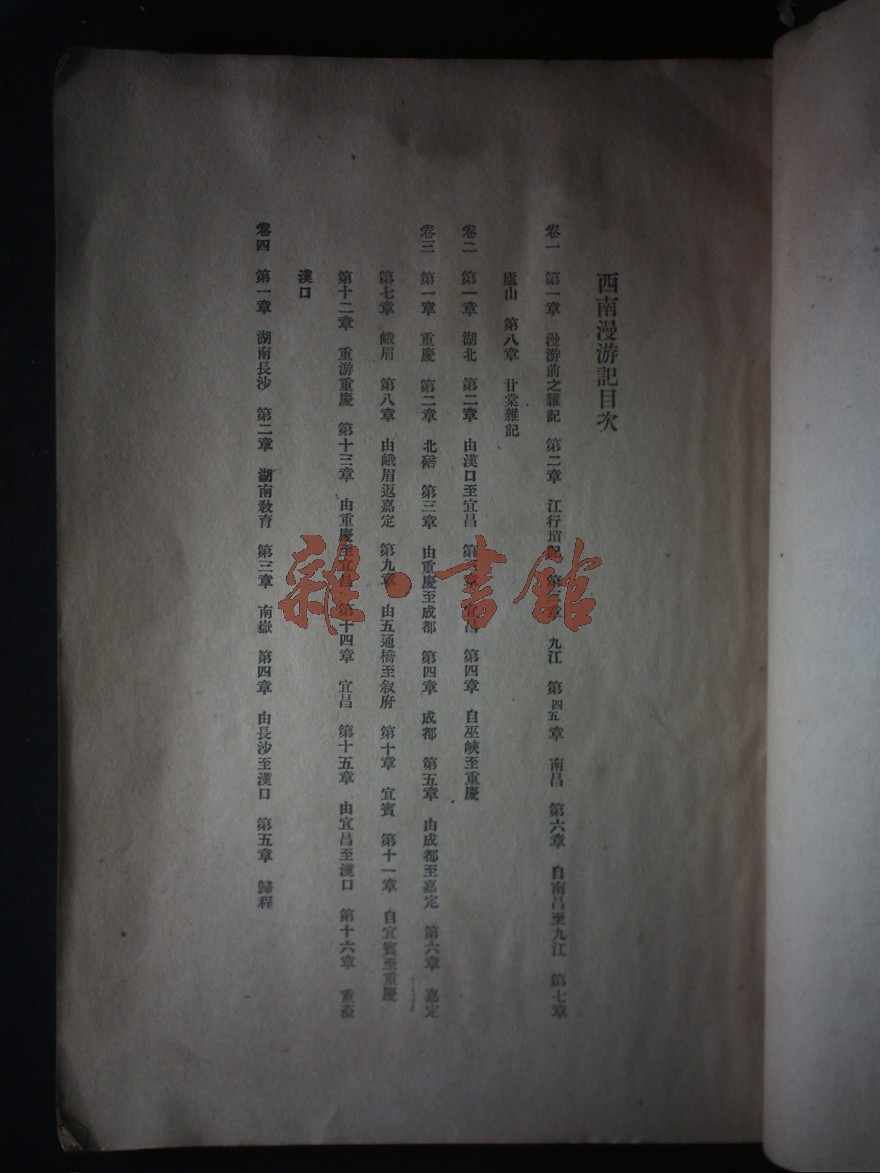 西南漫游記目次
卷一 第一章 漫游前之雜記 第二章 江行瑣記 第三章 九江 第四五章 南昌 第六章 自南昌至九江 第七章
廬山 第八章 甘棠雜記
卷二 第一章 湖北 第二章 由漢口至宜昌 第三章 宜昌 第四章 自巫峽至重慶
卷三 第一章 重慶 第二章 北碚 第三章 由重慶至成都 第四章 成都 第五章 由成都至嘉定 第六章 嘉定
第七章 峨眉 第八章 由峨眉返嘉定 第九章 由五通橋至敘府 第十章 宜賓 第十一章 自宜賓至重慶
第十二章 重游重慶 第十三章 由重慶至宜昌 第十四章 宜昌 第十五章 由宜昌至漢口 第十六章 重蒞
漢口
卷四 第一章 湖南長沙 第二章 湖南教育 第三章 南嶽 第四章 由長沙至漢口 第五章 歸程
雜·書館